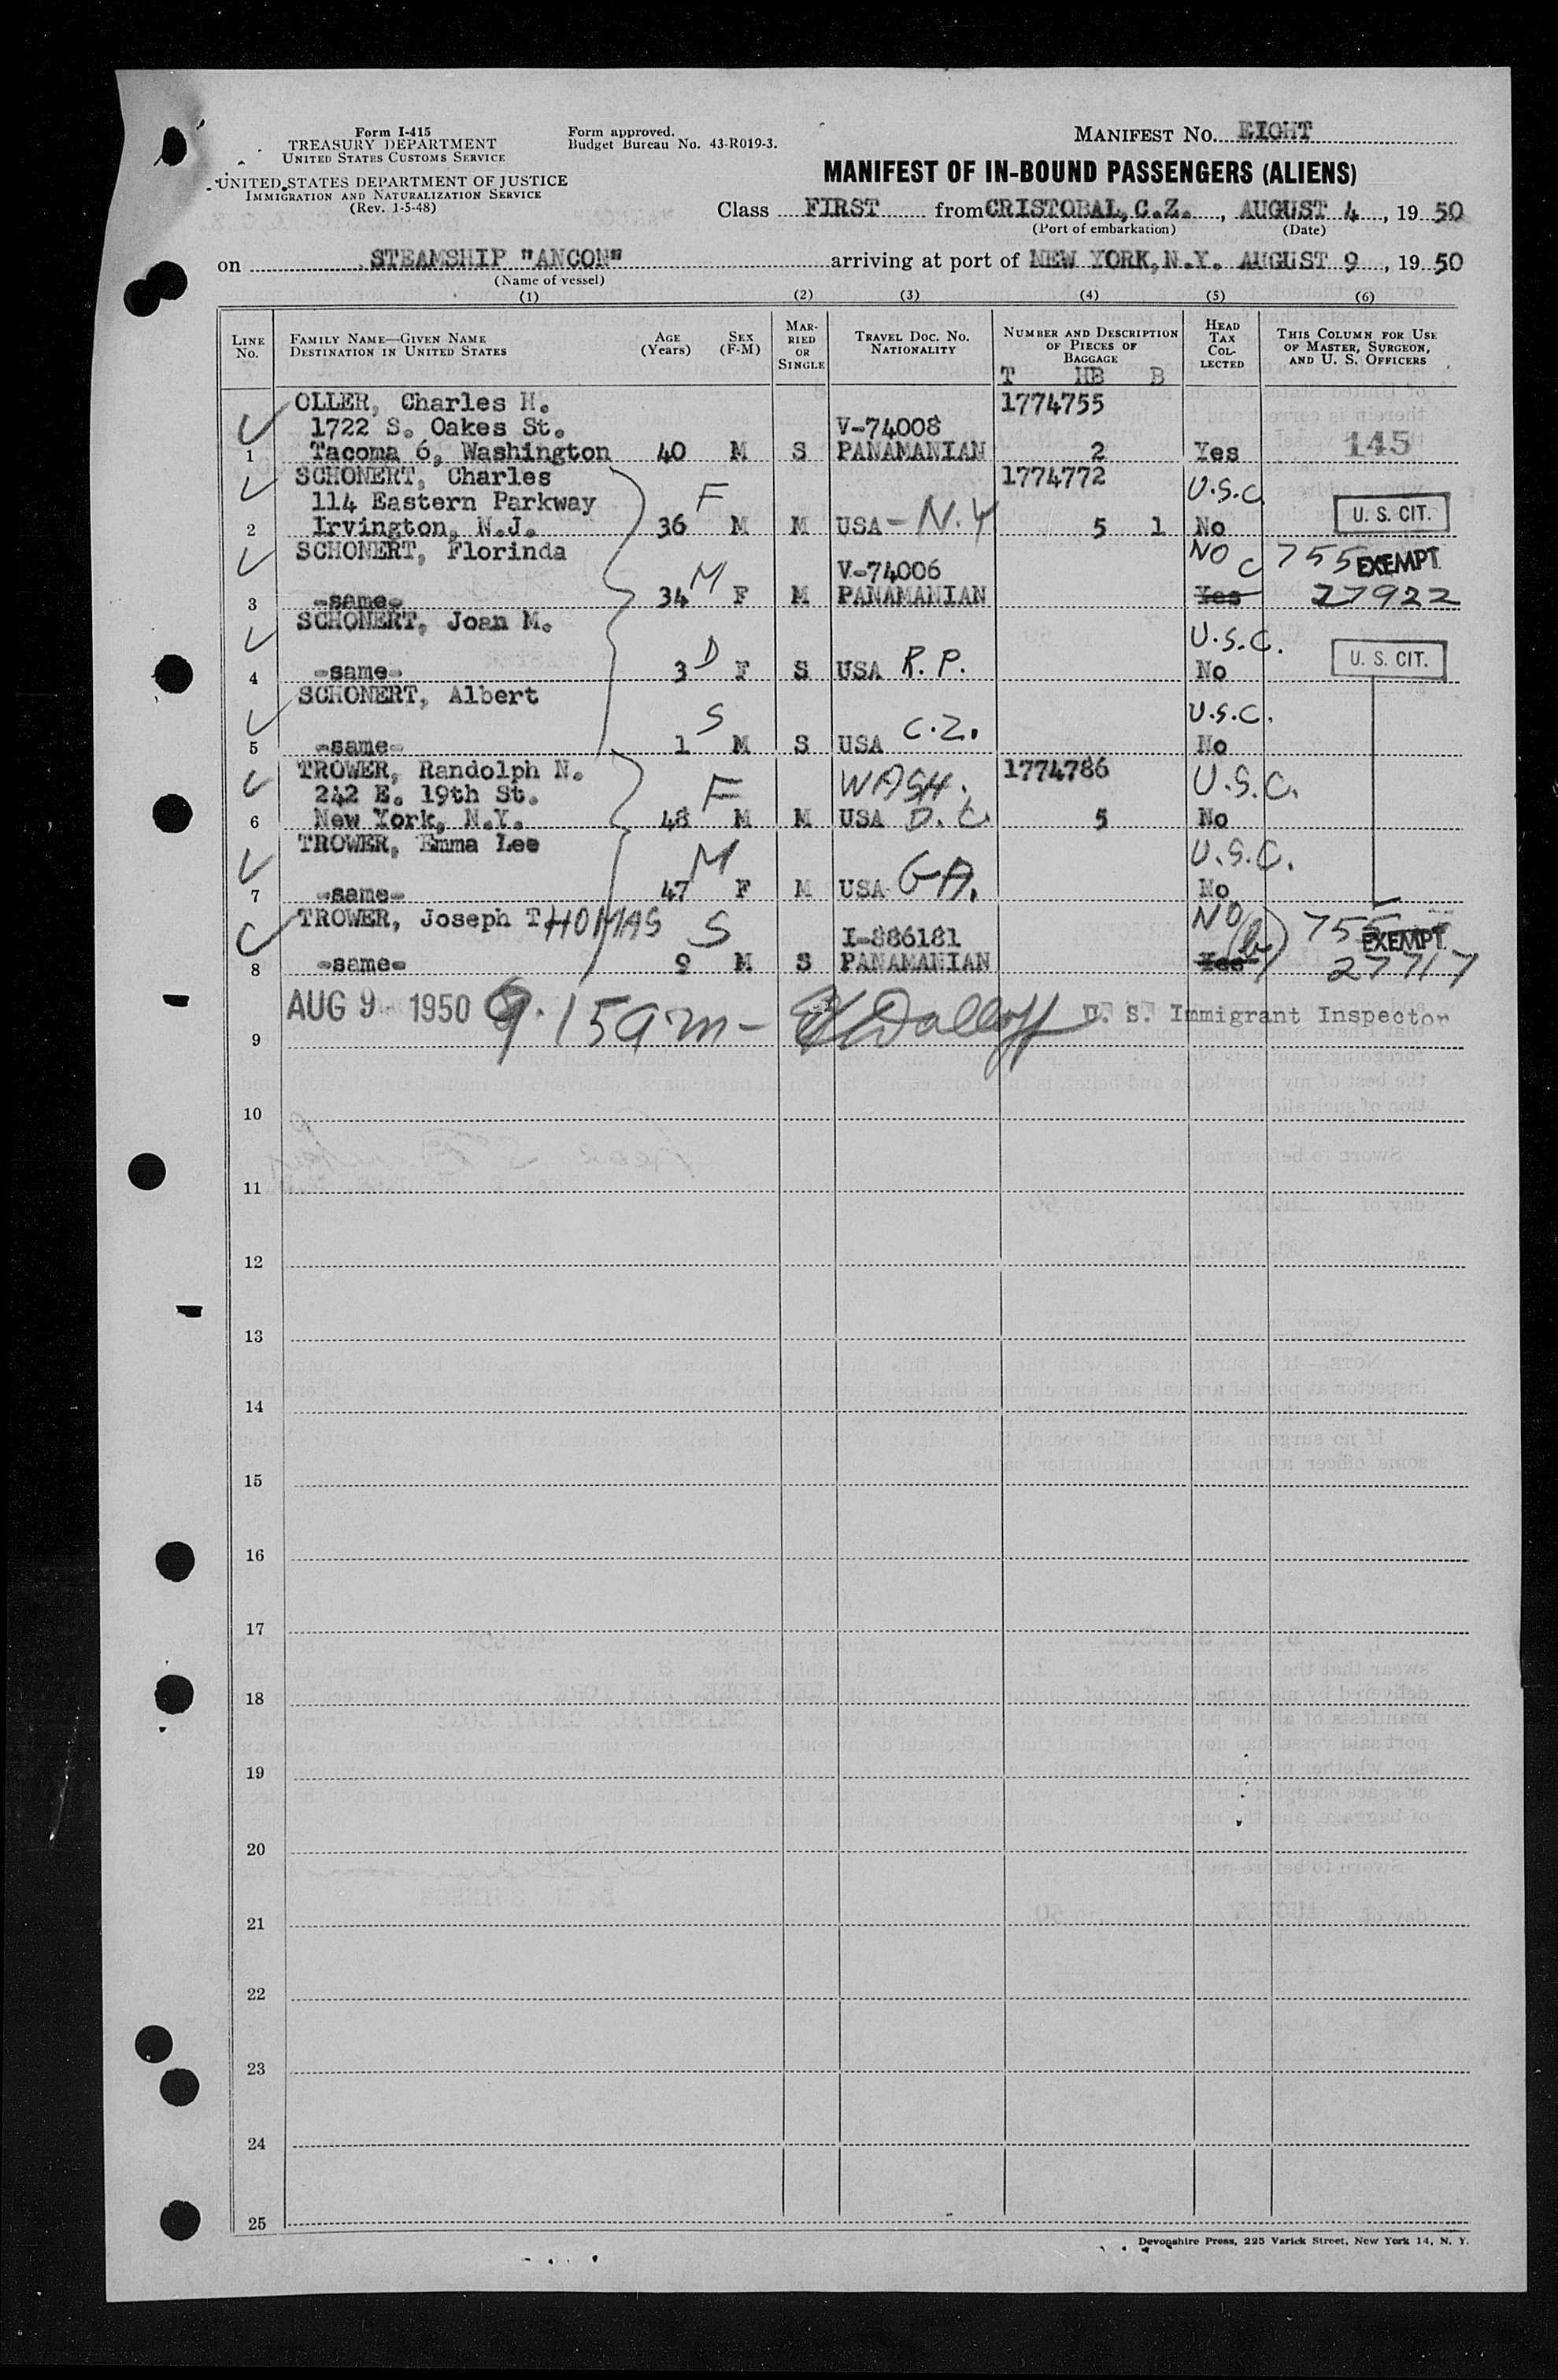 Form I-415
TREASURY DEPARTMENT
UNITED STATES CUSTOMS SERVICE
UNITED STATES DEPARTMENT OF JUSTICE
IMMIGRATION AND NATURALIZATION SERVICE
(Rev. 1-5-48)
Form approved.
Budget Bureau No. 43-R019-3.
MANIFEST NO. EIGHT
MANIFEST OF IN-BOUND PASSENGERS (ALIENS)
Class FIRST from CRISTOBAL, C.Z., AUGUST 4, 19 50
(Port of embarkation) (Date)
on STEAMSHIP "ANCON" arriving at port of NEW YORK, N.Y. AUGUST 9, 19 50
(Name of vessel)
(1) (2) (3) (4) (5) (6)
LINE NO. FAMILY NAME—GIVEN NAME DESTINATION IN UNITED STATES AGE (Years) SEX (F-M) MARRIED OR SINGLE TRAVEL DOC. NO. NATIONALITY NUMBER AND DESCRIPTION OF PIECES OF BAGGAGE HEAD TAX COLLECTED THIS COLUMN FOR USE OF MASTER, SURGEON, AND U. S. OFFICERS
T HB B
OLLER, Charles H. 1774755
1722 S. Oakes St. V-74008
1 Tacoma 6, Washington 40 M S PANAMANIAN 2 Yes 145
SCHONERT, Charles 1774772 U.S.C.
114 Eastern Parkway F
2 Irvington, N.J. 36 M M USA - N.Y 5 1 No U. S. CIT.
SCHONERT, Florinda V-74006 NO C 755 EXEMPT
3 -same- 34 M F M PANAMANIAN Yes 27922
SCHONERT, Joan M. U.S.C.
4 -same- 3 D F S USA R.P. No U. S. CIT.
SCHONERT, Albert S U.S.C.
5 -same- 1 M S USA C.Z. No
TROWER, Randolph N. WASH. 1774786 U.S.C.
242 E. 19th St. F
6 New York, N.Y. 48 M M USA D.C. 5 No
TROWER, Emma Lee M U.S.C.
7 -same- 47 F M USA GA. No
TROWER, Joseph THOMAS S I-886181 NO (b) 755 EXEMPT
8 -same- 9 M S PANAMANIAN Yes 27717
AUG 9 - 1950 9.15 a.m - U. S. Immigrant Inspector
9
10
11
12
13
14
15
16
17
18
19
20
21
22
23
24
25
Devonshire Press, 225 Varick Street, New York 14, N. Y.